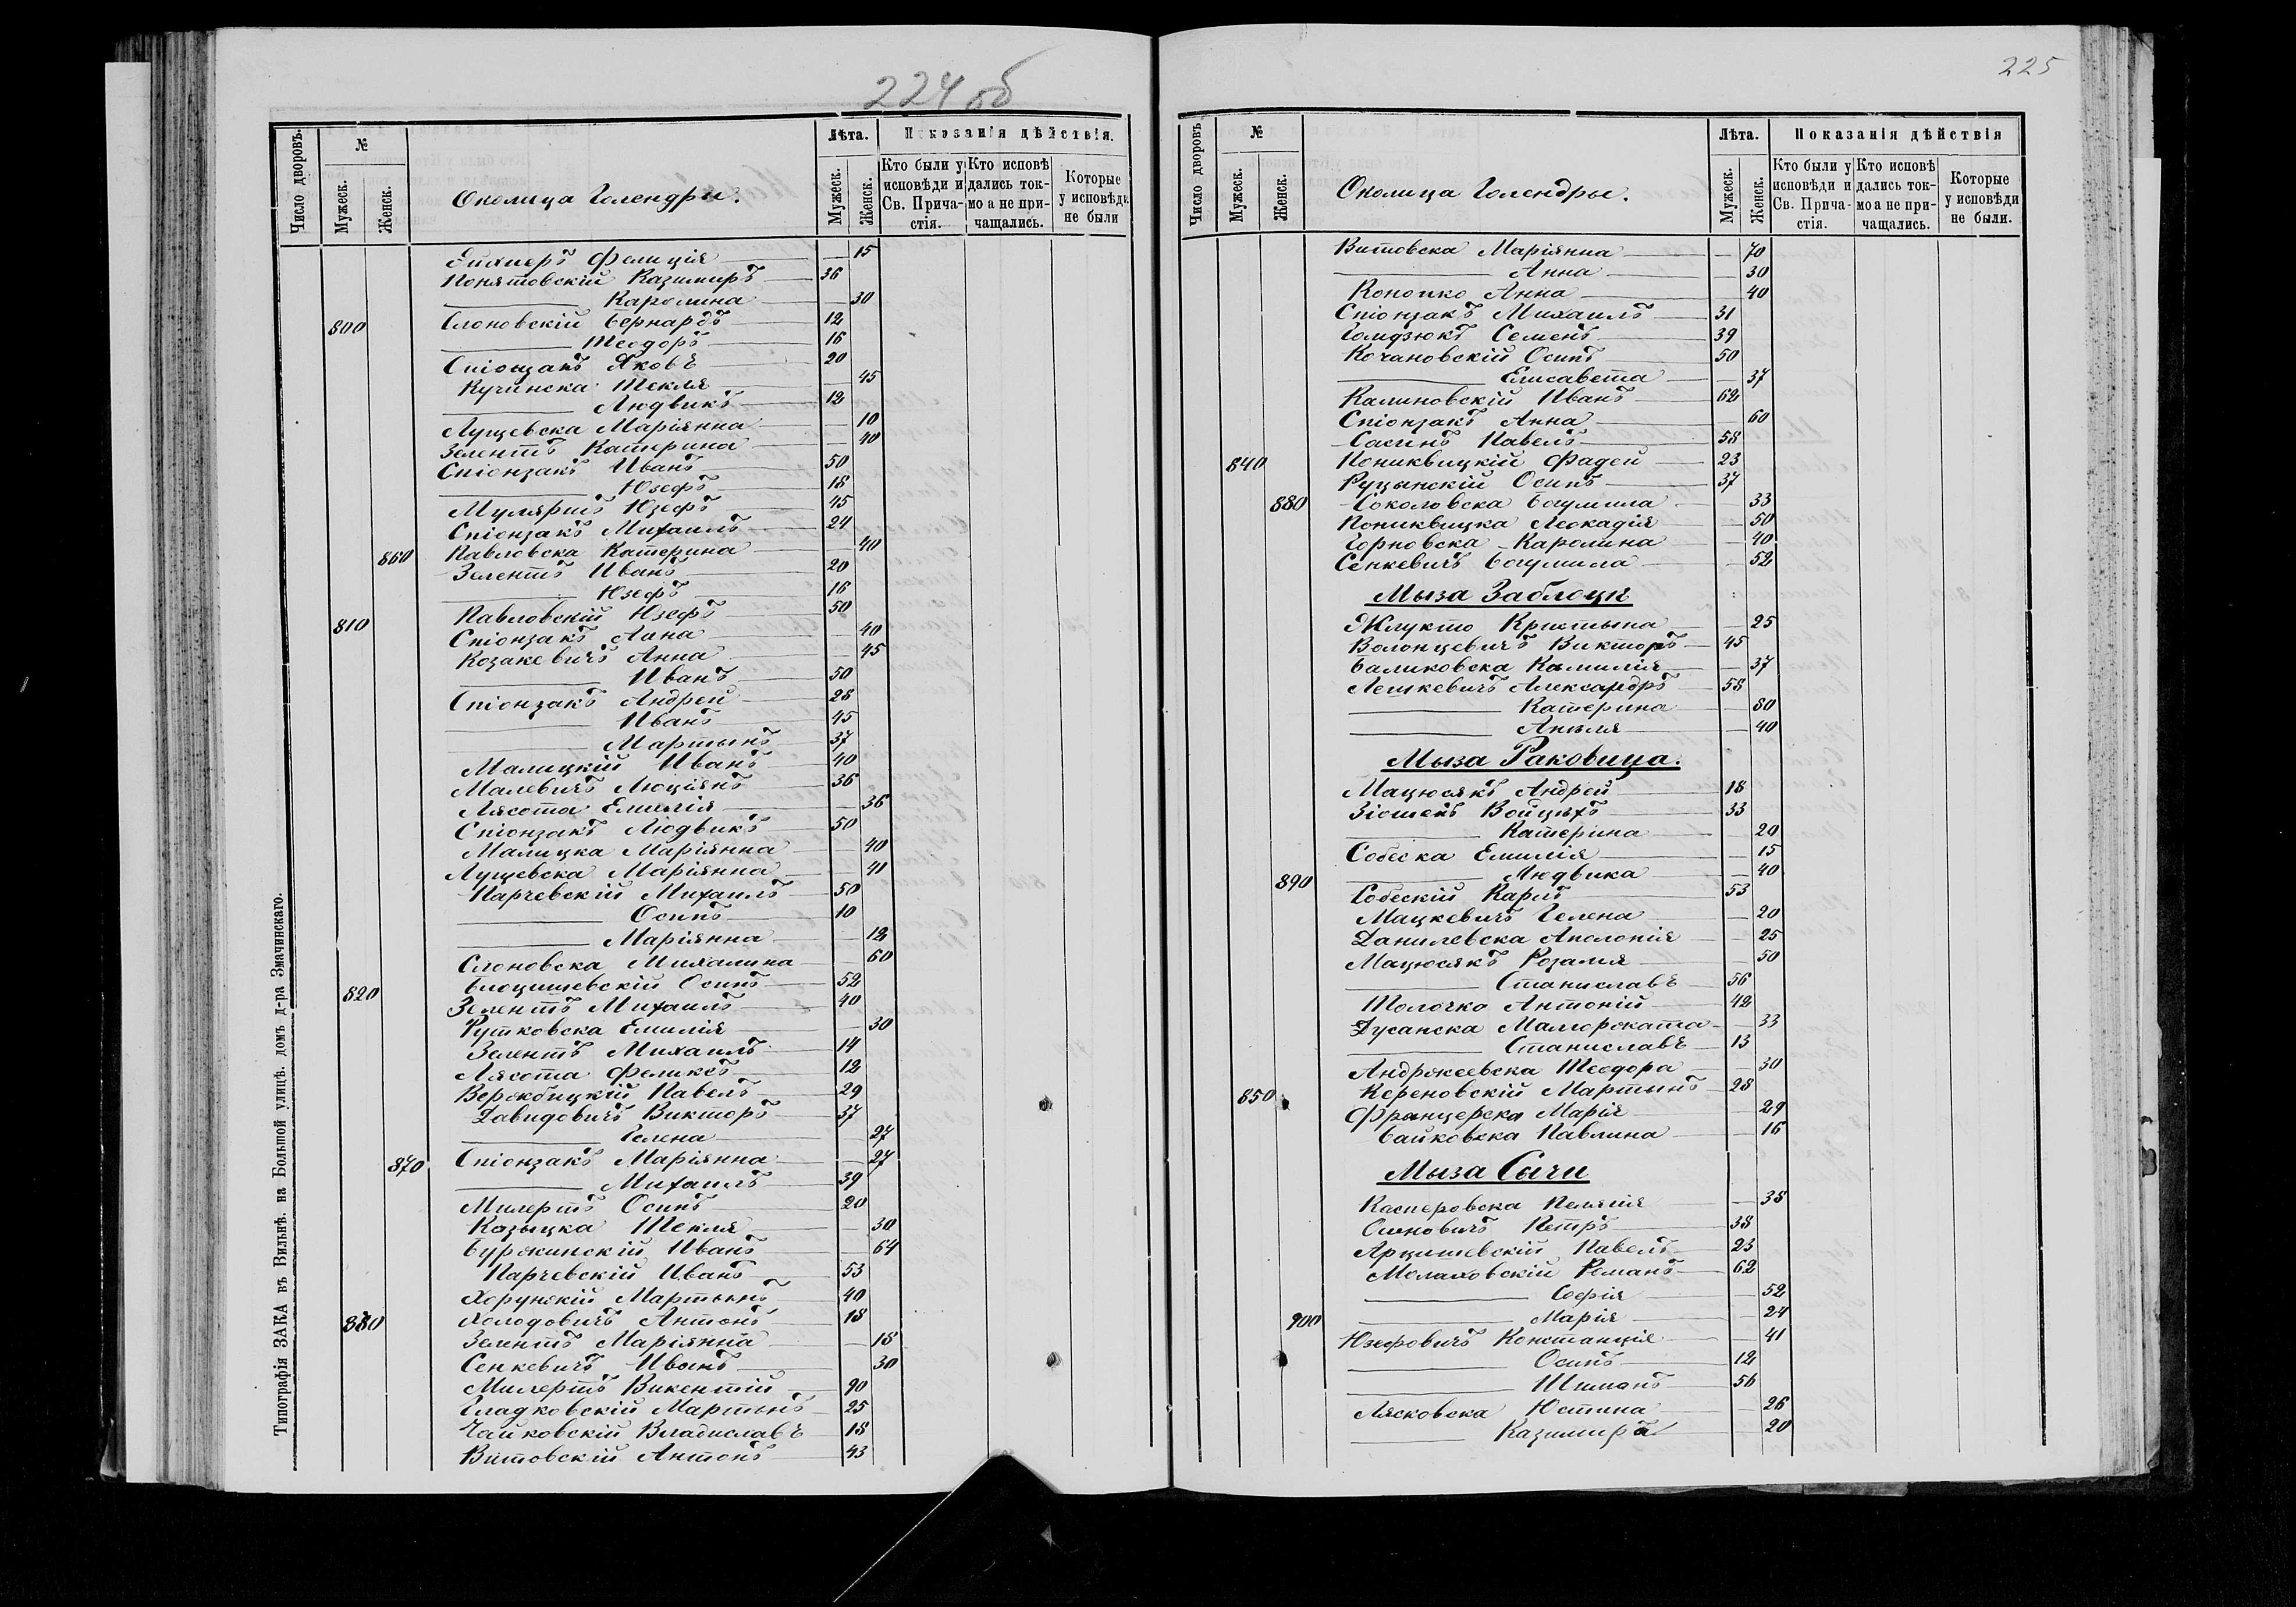 224 об
Число дворовъ.
№
Мужеск.
Женск.
Околица Голендры.
Лѣта.
Мужеск.
Женск.
Показанія дѣйствія.
Кто были у исповѣди и Св. Прича-стія.
Кто исповѣ дались ток-мо а не при-чащались.
Которые у исповѣди не были
Фелиція — 15
Понятовскій Казимиръ 36
——— Каролина — 30
800 Слоновскій Бернардъ 12
——— Теодоръ 16
Спіонзакъ Яковъ 20
Кучинска Текля — 45
——— Людвикъ 12
Лущевска Маріянна — 10
Зелентъ Катерина — 40
Спіонзакъ Иванъ 50
——— Юзефъ 18
Муляртъ Юзефъ 45
Спіонзакъ Михаилъ 24
860 Павловска Катерина — 40
Зелентъ Иванъ 20
——— Юзефъ 16
810 Павловскій Юзефъ 50
Спіонзакъ Анна — 40
Козакевичъ Анна — 45
——— Иванъ 50
Спіонзакъ Андрей 28
——— Иванъ 45
——— Мартынъ 37
Малицкій Иванъ 40
Малевичъ Люціянъ 36
Лясота Емилія — 36
Спіонзакъ Людвикъ 50
Малицка Маріянна — 40
Лущевска Маріянна — 41
Парчевскій Михаилъ 50
——— Осипъ 10
——— Маріянна — 12
Слоновска Михалина — 60
820 Блоцишевскій Осипъ 52
Зелентъ Михаилъ 40
Рутковска Емилія — 30
Зелентъ Михаилъ 14
Лясота Феликсъ 12
Вержбицкій Павелъ 29
Давидовичъ Викторъ 37
——— Гелена — 27
870 Спіонзакъ Маріянна — 27
——— Михаилъ 39
Милертъ Осипъ 20
Казыцка Текля — 30
Буржинскій Иванъ — 64
Парчевскій Иванъ 53
Хорунскій Мартынъ 40
830 Холодовичъ Антонъ 18
Зелентъ Маріянна — 18
Сенкевичъ Иванъ — 30
Милертъ Викентій 90
Гладковскій Мартынъ 25
Чайковскій Владиславъ 18
Витовскій Антонъ 43
Типографія ЗАКА въ Вильнѣ. на Большой улицѣ. домъ д-ра Змачинскаго.
225
Число дворовъ
№
Мужеск.
Женск.
Околица Голендры.
Лѣта.
Мужеск.
Женск.
Показанія дѣйствія
Кто были у исповѣди и Св. Прича-стія.
Кто исповѣ дались ток-мо а не при-чащались.
Которые у исповѣди не были.
Витовска Маріянна — 70
——— Анна — 30
Конопко Анна — 40
Спіонзакъ Михаилъ 31
Голдзюкъ Семенъ 39
Кочановскій Осипъ 50
——— Елисавета — 37
Калиновскій Иванъ 62
Спіонзакъ Анна — 60
Сасинъ Павелъ 58
840 Пониквицкій Фадей 23
Руцынскій Осипъ 37
880 Соколовска Богумила — 33
Пониквицка Леокадія — 50
Горновска Каролина — 40
Сенкевичъ Богумила — 52
Мыза Заблоци
Жлукто Кристына — 25
Волонцевичъ Викторъ 45
Баликовска Камилія — 37
Лешкевичъ Александръ 58
——— Катерина — 80
——— Анѣля — 40
Мыза Раковица.
Мацюсякъ Андрей 18
Зіомекъ Войцѣхъ 33
——— Катерина — 20
Собеска Емилія — 15
——— Людвика — 40
890 Собескій Карлъ 53
Мацкевичъ Гелена — 20
Данилевска Аполонія — 25
Мацюсякъ Розалія — 50
——— Станиславъ 56
Толочко Антоній 42
Дусанска Малгоржата — 33
——— Станиславъ 13
Андржеевска Теодора — 30
850 Кереновскій Мартынъ 28
Францерска Марія — 29
Байковска Павлина — 16
Мыза Сычи
Касперовска Пелагія — 38
Ошновичъ Петръ 38
Арцишевскій Павелъ 23
Молаховскій Романъ 62
——— Софія — 52
900 ——— Марія — 24
Юзефовичъ Констанція — 41
——— Осипъ 12
——— Шимонъ 56
Лясковска Юстина — 26
——— Казимира — 20